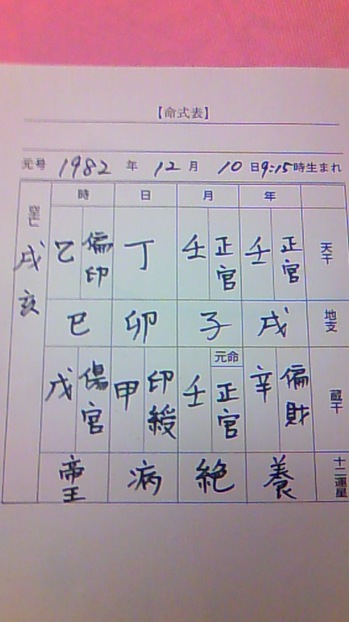 【命式表】
元号 1982 年 12 月 10 日 9:15 時生まれ
時 日 月 年
空亡 戌亥
乙 偏印 丁 壬 正官 壬 正官 天干
巳 卯 子 戌 地支
元命
戊 傷官 甲 印綬 壬 正官 辛 偏財 蔵干
帝王 病 絶 養 十二運星